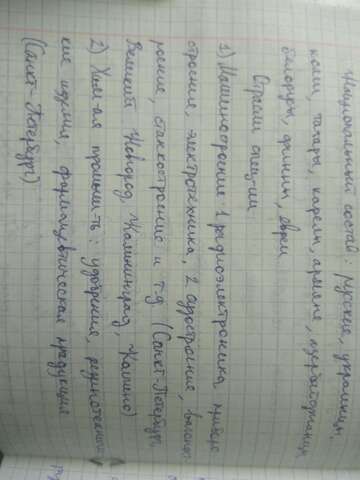 Национальный состав: русские, украинцы,
коми, татары, карелы, армяне, азербайджанцы
белорусы, финны, евреи
Отрасли спец-ии
1) Машиностроение 1 радиоэлектроника, приборо
строение, электротехника, 2 судостроение, вагонос-
роение, станкостроение и т.д (Санкт-Петербург,
Великий Новгород, Калининград, Колпино)
2) Хим-ая промышл-ть: удобрения, резинотехничес
кие изделия, фармацевтическая продукция
(Санкт-Петербург)